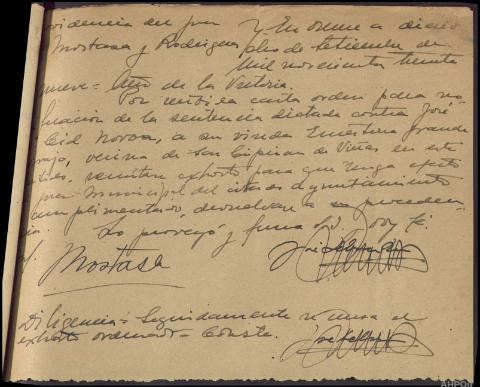 videncia del juez
Mostasa y Rodriguez
Orense a diecio
cho de Setiembre de
mil novecientos treinta
nueve = Año de la Victoria.
Por recibida carta orden para no
ficacion de la sentencia dictada contra José
Cid Novoa, a su viuda Emestina Grande
vecina de San Ciprian de Viñas en este
remitase exhorto para que tenga efecto
juez Municipal del citado Ayuntamiento
cumplimentado, devuelvase a su proceden
Lo proveyó y firma SSª. Doy fé.
Mostasa
Diligencia = Seguidamente se cursa el
exhorto ordenado = Conste.
AHPOu